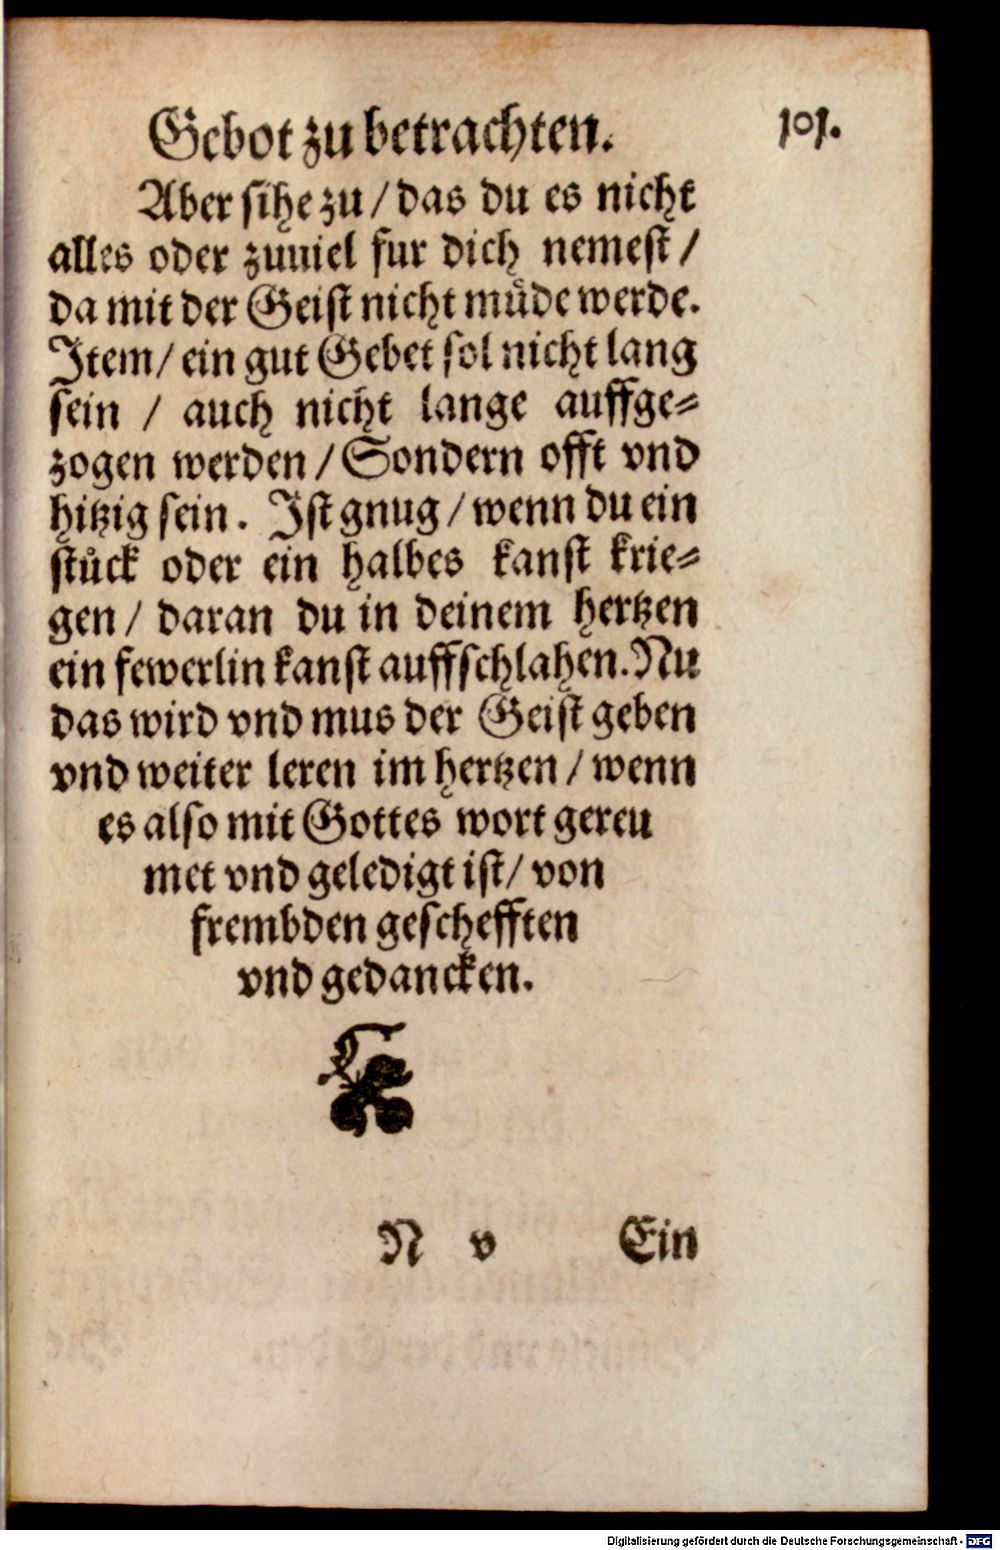 Gebot zu betrachten. 101.
Aber sihe zu / das du es nicht
alles oder zuuiel fur dich nemest /
da mit der Geist nicht muͤde werde.
Item / ein gut Gebet sol nicht lang
sein / auch nicht lange auffge⸗
zogen werden / Sondern offt vnd
hitzig sein. Ist gnug / wenn du ein
stuͤck oder ein halbes kanst krie⸗
gen / daran du in deinem hertzen
ein fewerlin kanst auffschlahen. Nu
das wird vnd mus der Geist geben
vnd weiter leren im hertzen / wenn
es also mit Gottes wort gereu
met vnd geledigt ist / von
frembden geschefften
vnd gedancken.
N v Ein
Digitalisierung gefördert durch die Deutsche Forschungsgemeinschaft - DFG